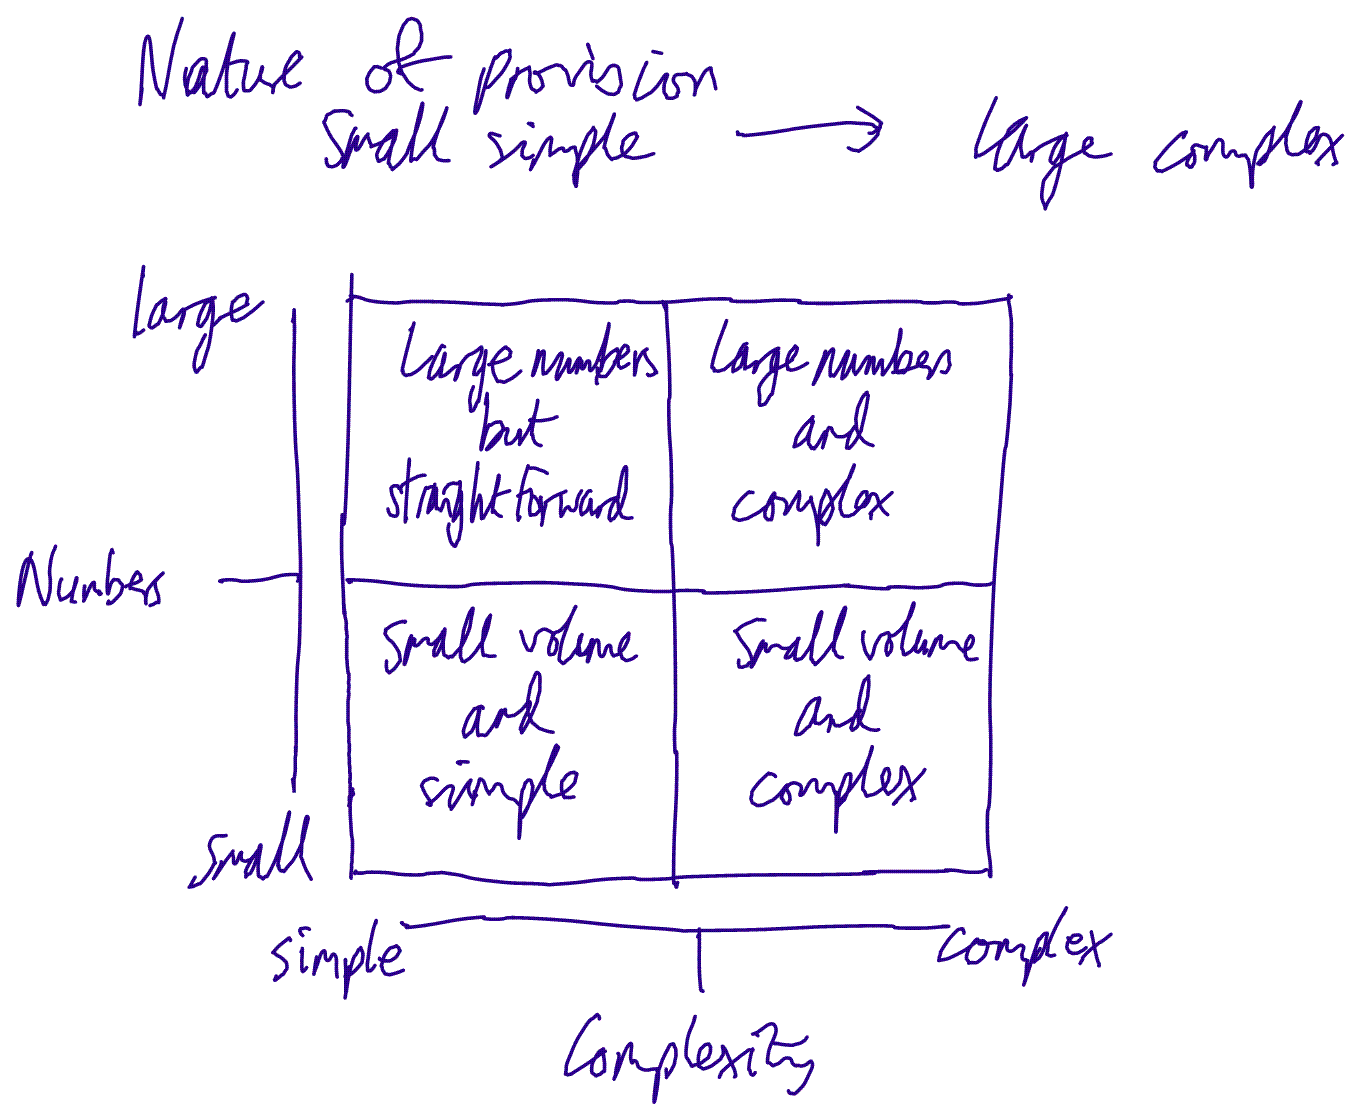 Nature of provision
Small simple → large complex
Large
Large numbers
but
straightforward
Large numbers
and
complex
Numbers
Small volume
and
simple
Small volume
and
complex
Small
simple
complex
Complexity